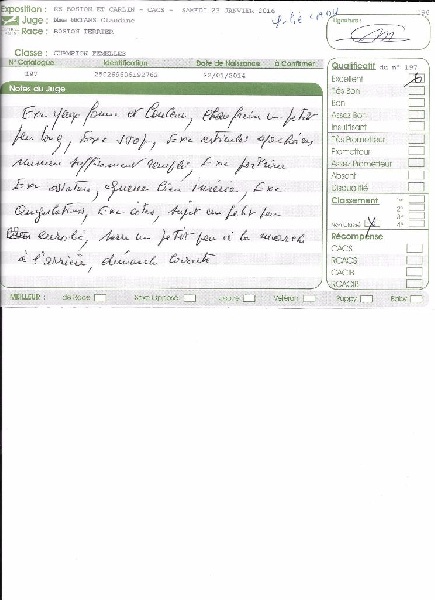 Exposition : RS BOSTON ET CARLIN - CACS - SAMEDI 23 JANVIER 2016
Juge : Mme Claudine
Race : BOSTON TERRIER
Signature :
Classe : CHAMPION FEMELLES
N° Catalogue Identification Date de Naissance à Confirmer
197 22/01/2014
Notes du Juge
Exc type forme et couleur, chanfrein un petit
peu long, Exc stop, Exc
museau suffisamment rempli, Exc poitrine
Exc ossature, queue bien insérée, Exc
angulations, Exc côtes, sujet un petit peu
enrobé, serre un petit peu à la marche
à l'arrière, démarche
Qualificatif du n° 197
Excellent
Très Bon
Bon
Assez Bon
Insuffisant
Très Prometteur
Prometteur
Assez Prometteur
Absent
Disqualifié
Classement 1er
2e
3e
Non classé 4e
Récompense
CACS
RCACS
CACIB
RCACIB
MEILLEUR : de Race Sexe Opposé Jeune Vétéran Puppy Baby